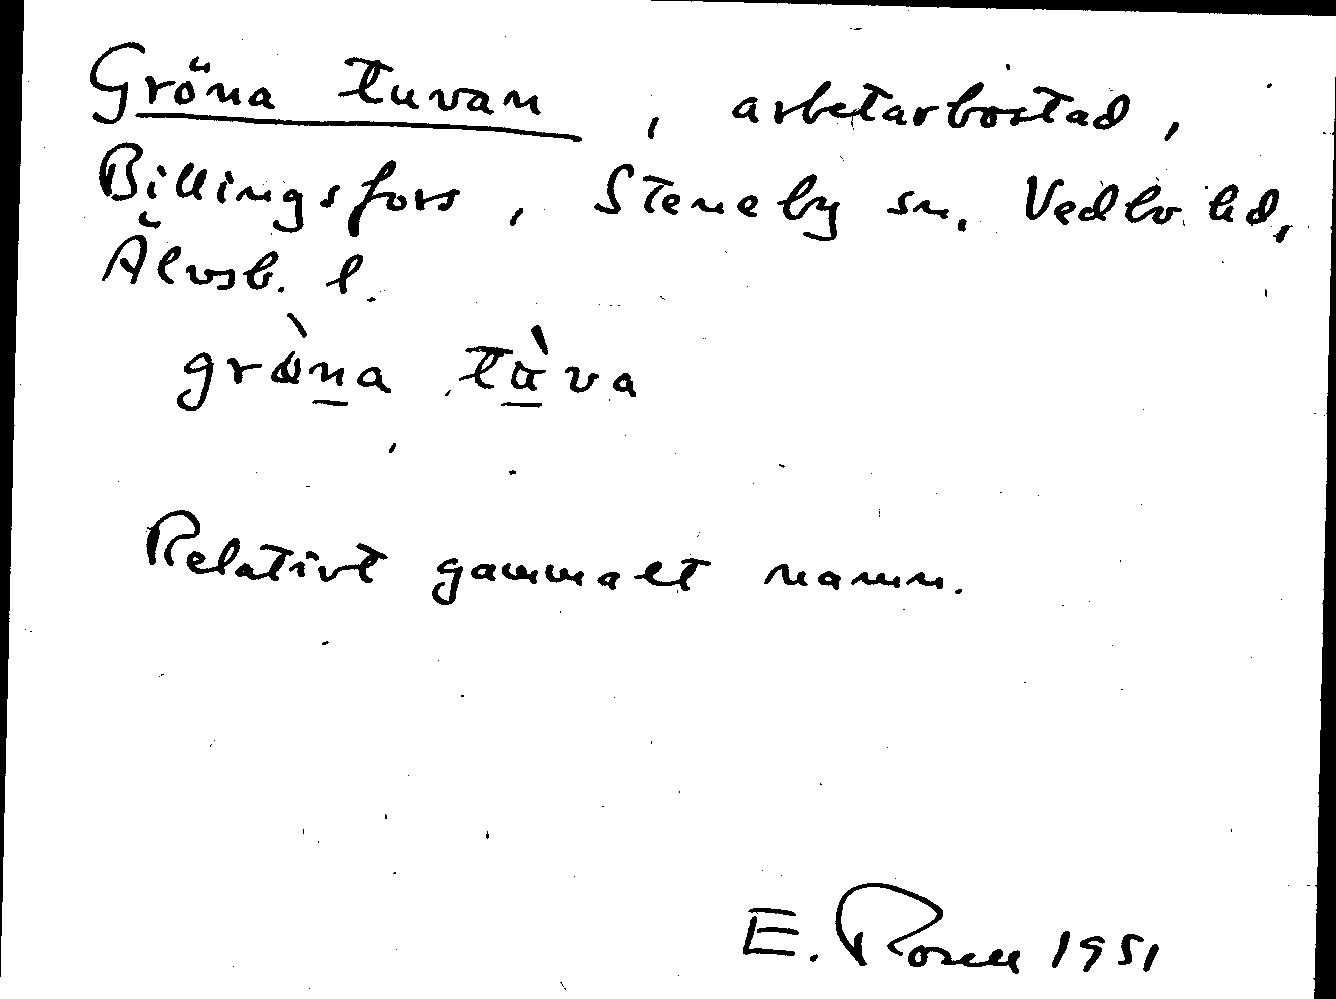 Gröna tuvan, arbetarbostad,
Billingsfors, Steneby sn. Vedbo hd,
Älvsb. l.
grö̀na tùva
Relativt gammalt namn.
E. Rosell 1951